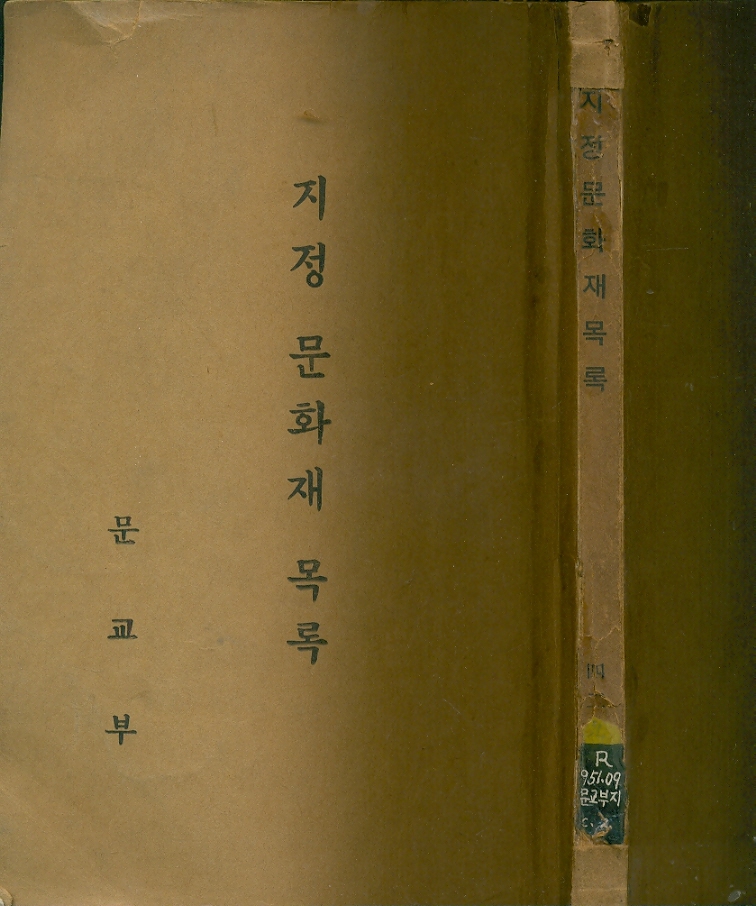 지정 문화재 목록
문교부
지정문화재목록
R
951.09
문교부지